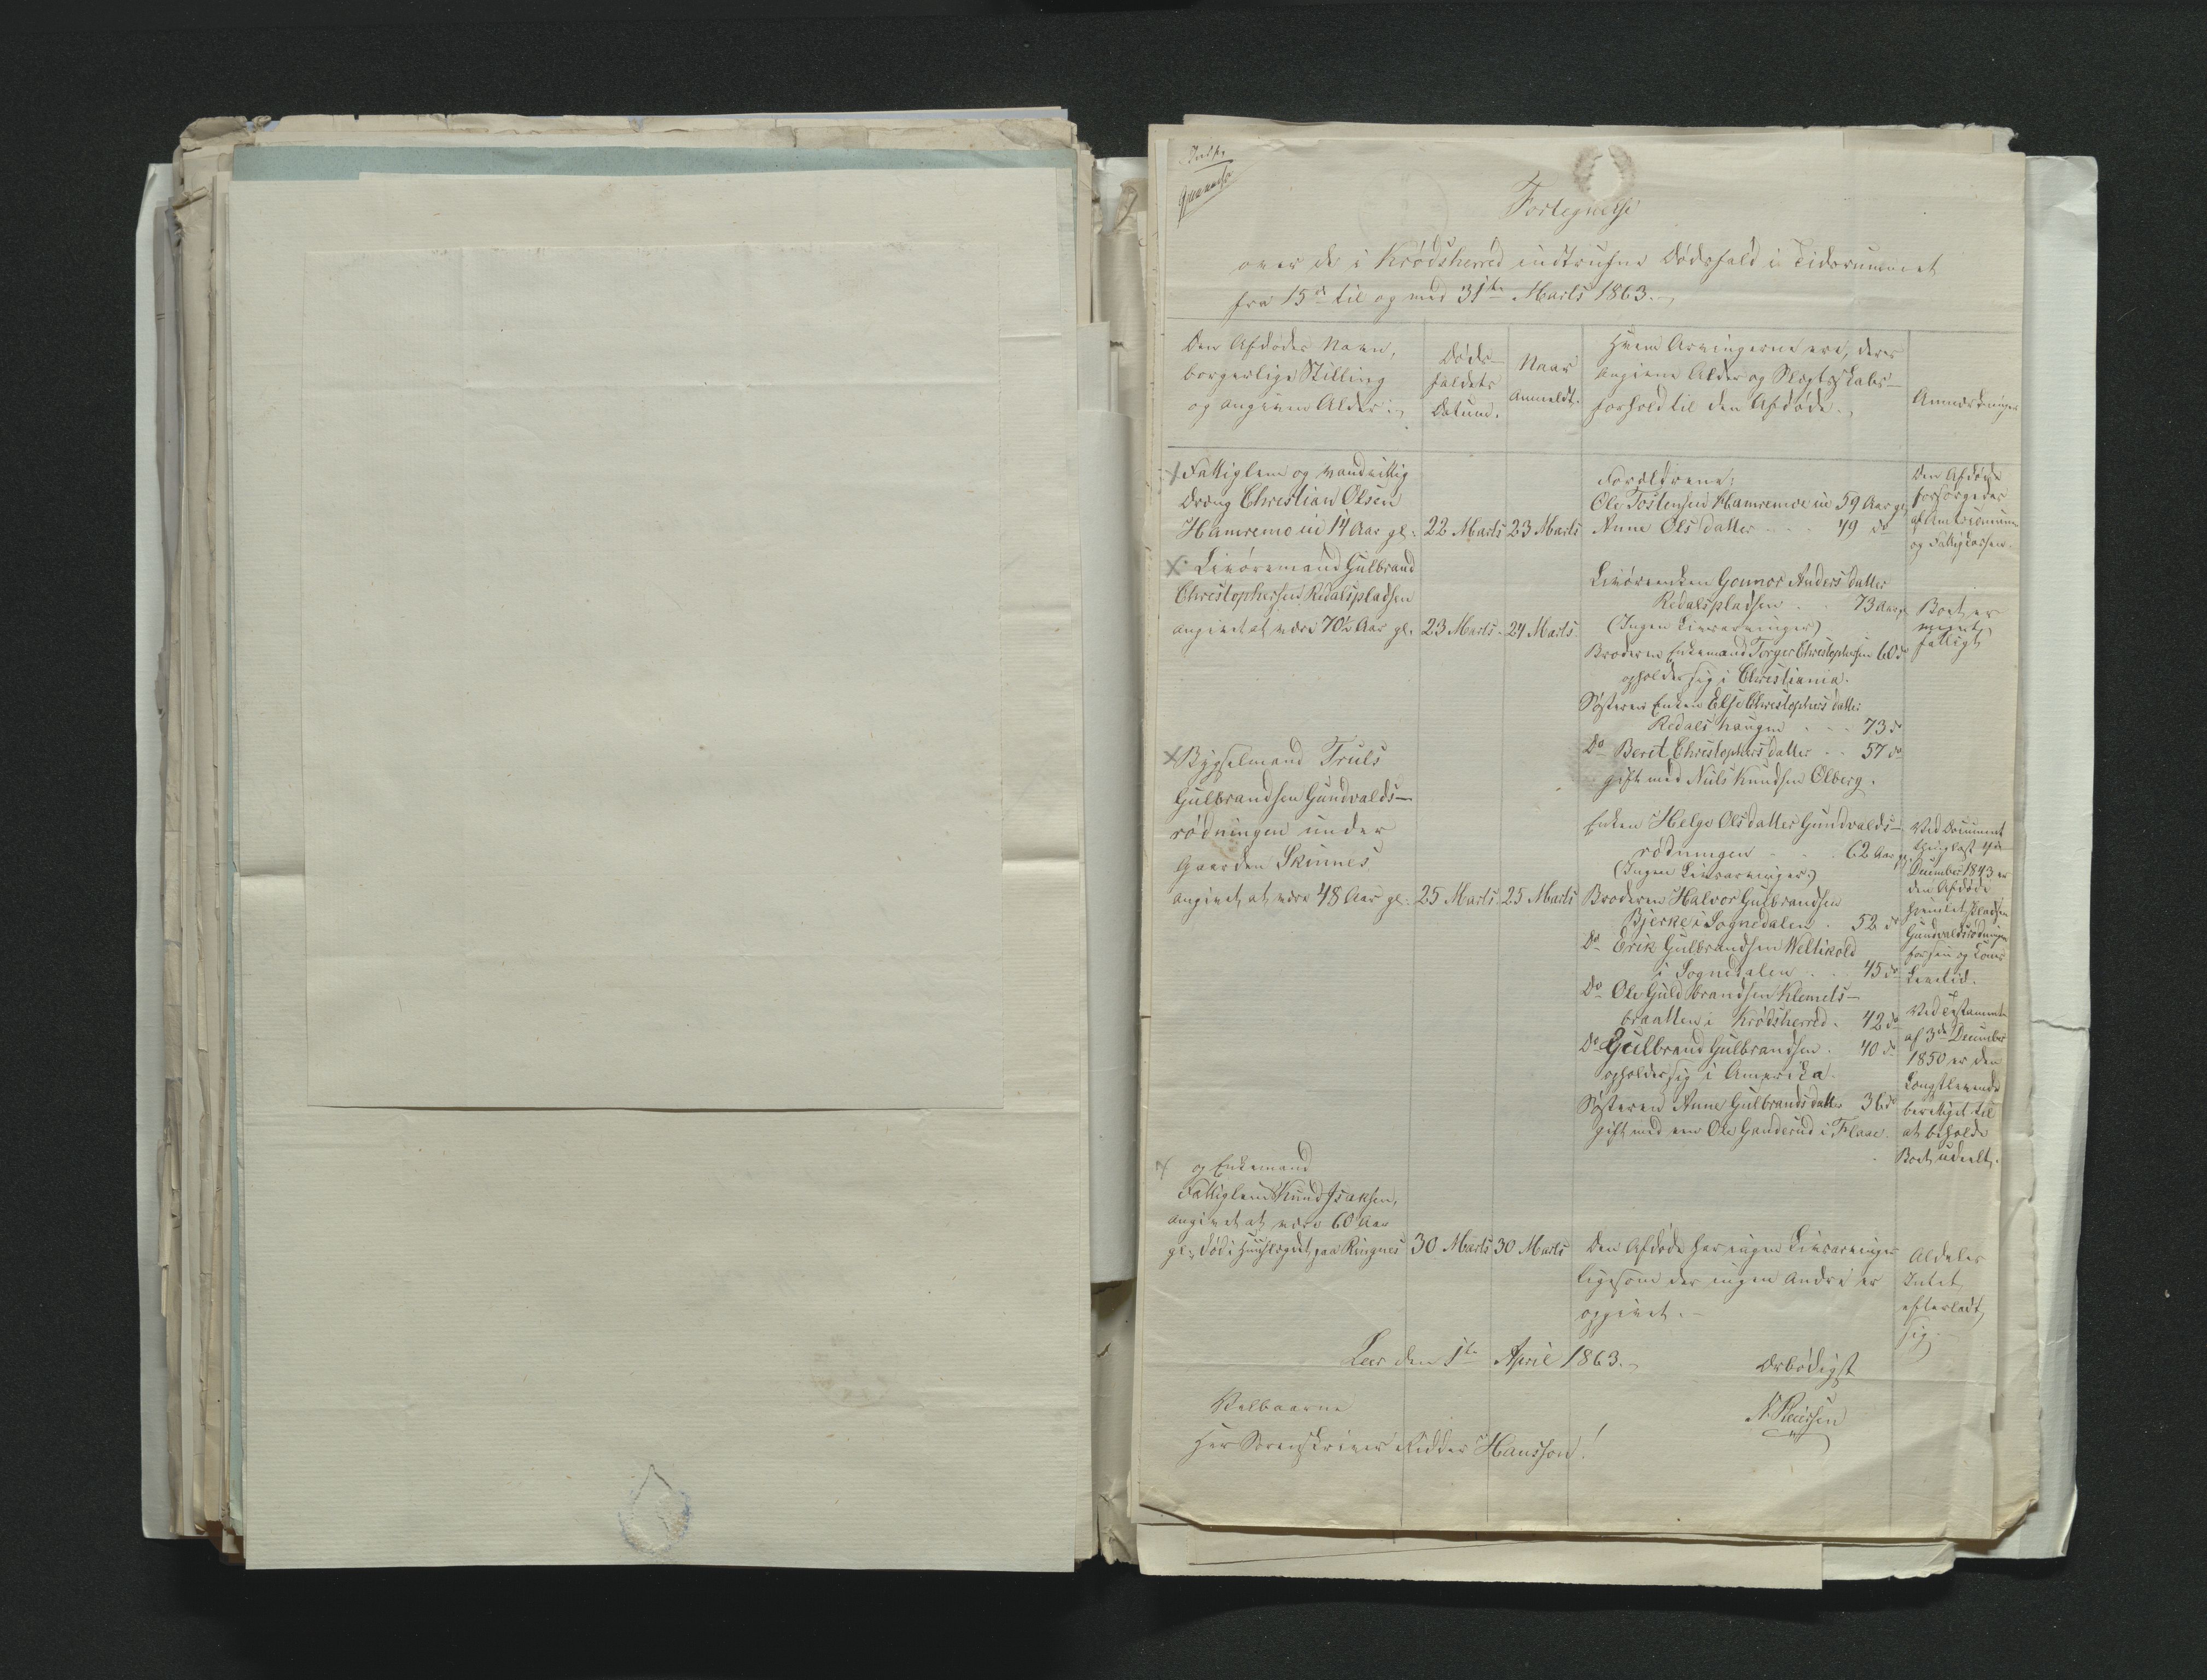 Fortegnelse
over de i Krødsherred indtrufne Dødsfald i Tidsrummet
fra 15de til og med 31te Marts 1863.
Den Afdødes Navn,
borgerlige Stilling
og angivne Alder.
Døds-
faldets
Datum.
Naar
anmeldt.
Hvem Arvingerne ere, deres
angivne Alder og Slægtskabs-
forhold til den Afdøde.
Anmærkninger
Fattiglem og vandvittig
Dreng Christian Olsen
Hamremoeie 14 Aar gl.
22 Marts
23 Marts
Forældrene:
Ole Tostensen Hamremoeie 59 Aar gl.
Anne Olsdatter 49 do
Den Afdøde
forsørgedes
af Amtscommune
og Fattigkassen.
Livøremand Gulbrand
Christophersen Redalspladsen
angivet at være 70½ Aar gl.
23 Marts
24 Marts
Livørenken Gonnor Andersdatter
Redalspladsen 73 Aar gl.
(Ingen Livsarvinger)
Broderen Enkemand Torger Christophersen 60 do
opholder sig i Christiania.
Søsteren Enken Elje Christophersdatter
Redalshaugen 73 do
Do Berit Christophersdatter 57 do
gift med Niels Knudsen Olberg.
Boet er
meget
fattigt
Bygselmand Truls
Gulbrandsen Gundvalds-
rødningen under
Gaarden Skinnes
angivet at være 48 Aar gl.
25 Marts
25 Marts
Enken Helge Olsdatter Gundvalds-
rødningen 62 Aar gl.
(Ingen Livsarvinger)
Broderen Halvor Gulbrandsen
Bjerke i Sognedalen 52 do
Do Erik Gulbrandsen Weltikold
i Sognedalen 45 do
Do Ole Guldbrandsen Klemets-
braatten i Krødsherred 42 do
Do Gulbrand Gulbrandsen 40 do
opholder sig i Amerika.
Søsteren Anne Gulbrandsdatter 36 do
gift med en Ole Ganderud i Flaae.
Ved Document
thinglæst 4de
December 1843 er
den Afdøde
Pladsen
Gundvaldsrødningen
for sin og Kones
Levetid.
Ved Testamente
af 3de December
1850 er den
Længstlevende
berettiget til
at beholde
Boet udeelt.
og Enkemand
Fattiglem Knud Isaksen,
angivet at være 60 Aar
gl. død i paa Ringnes
30 Marts
30 Marts
Den Afdøde har ingen Livsarvinger
ligesom der ingen Andre er
opgivet.
Aldeles
Intet
efterladt
sig.
Leer den 1te April 1863.
Ærbødigst
Velbaarne
Herr Sorenskriver Ridder Hansson!